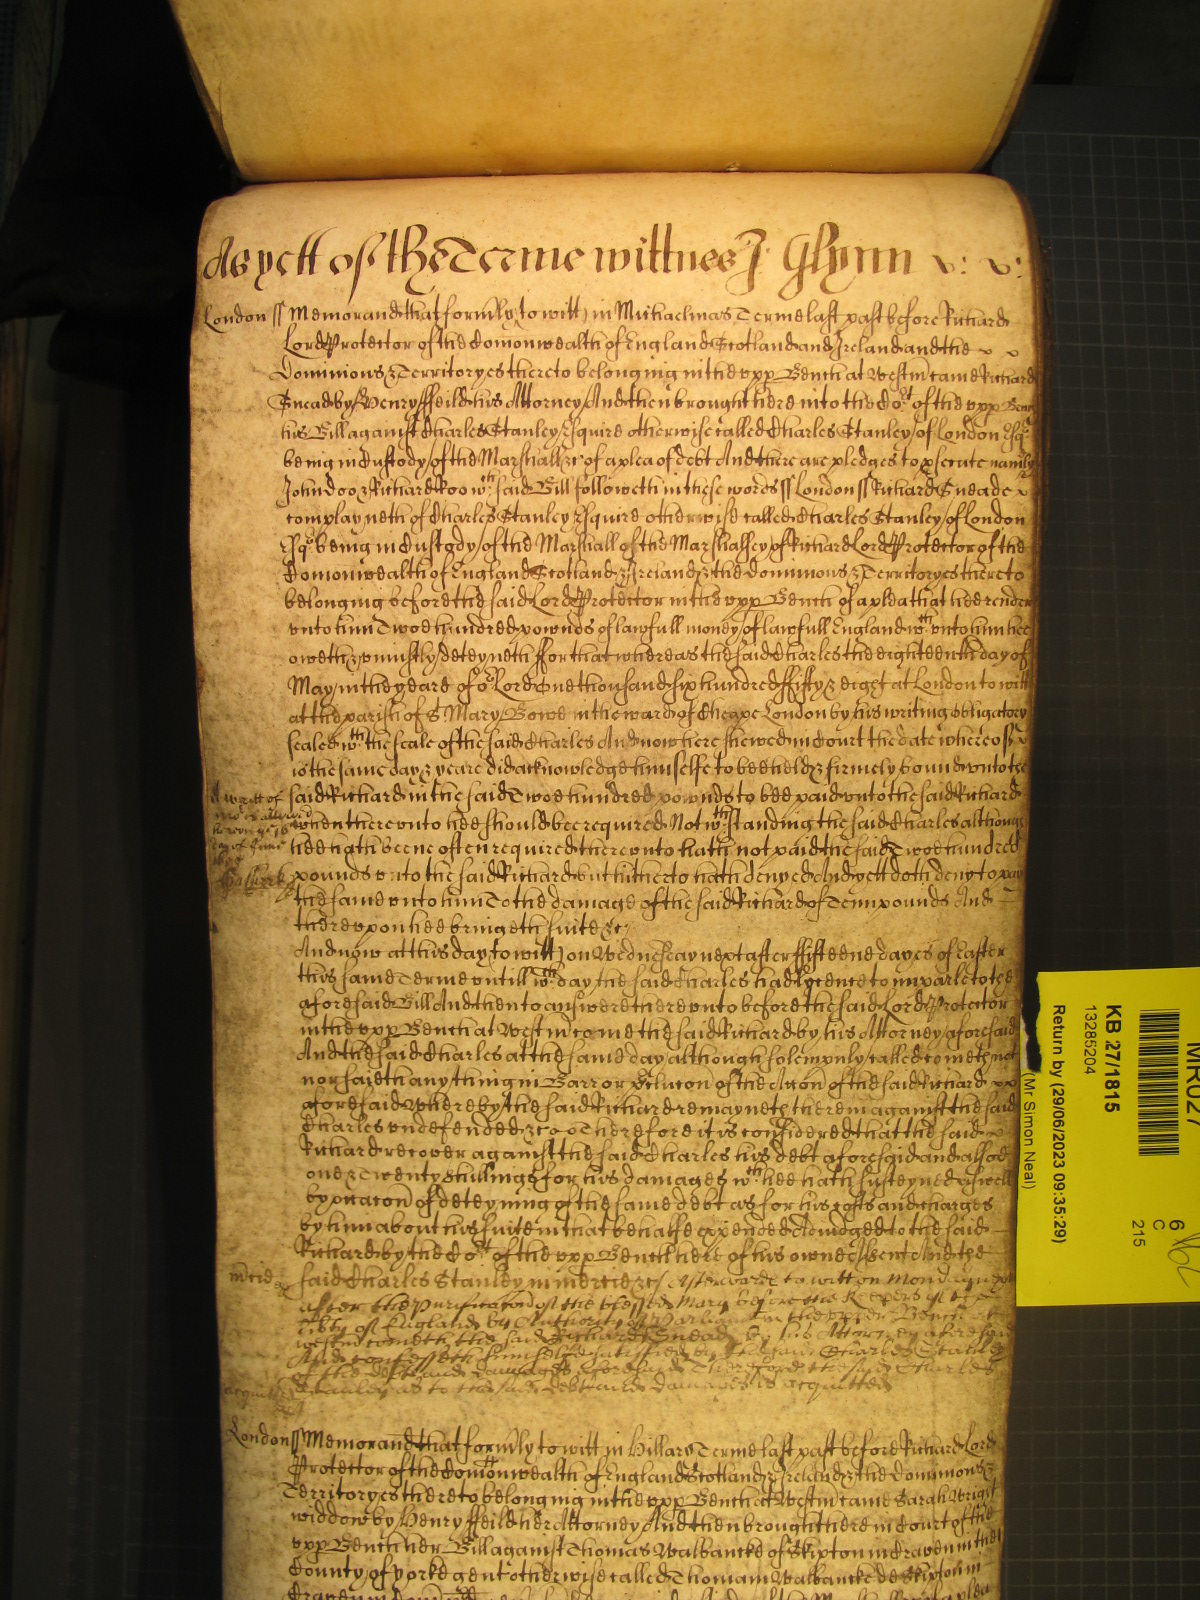 As yett of the Terme wittnes J: Glynn v: v:
London ss Memorand that formly to witt in Michaelmas Terme last past before Richard
Lord Protector of the Comonwealth of England Scotland and Ireland and the
Dominions & Territoryes thereto belonging in the vpp Bench at Westm came Richard
Snead by Henry ffeild his Attorney And then brought here into the Cort of the vpp Bench
his Bill against Charles Stanley Esquire otherwise called Charles Stanley of London Esqr
being in Custody of the Marshall &c of a plea of debt And there are pledges to psecute namely
John Doo & Richard Roo wch said Bill followeth in these words ss London ss Richard Sneade
complayneth of Charles Stanley Esquire otherwise called Charles Stanley of London
Esqr being in Custody of the Marshall of the Marshallsey of Richard Lord Protector of the
Comonwealth of England Scotland & Ireland & the dominions & Territoryes thereto
belonging before the said Lord Protector in the vpp Bench of a plea that hee render
vnto him Twoe hundred pownds of lawfull money of lawfull England wch vnto him hee
oweth & vniustly deteyneth ffor that whereas the said Charles the eighteenth day of
May in the yeare of or Lord One thousand six hundred ffifty & eight at London to witt
at the parish of S Mary Bowe in the ward of Cheape London by his writing obligatory
sealed wth the seale of the said Charles And now here shewed in Court the date whereof
is the same day & yeare did acknowledge himselfe to bee held & firmely bound vnto the
said Richard in the said Twoe hundred pownds to bee paid vnto the said Richard
when therevnto hee should bee required Notwthstanding the said Charles although
hee hath beene often required therevnto hath not paid the said Twoe hundred
pounds vnto the said Richard but hitherto hath denyed And yett doth deny to pay
the same vnto him To the damage of the said Richard of Tenn pounds And
therevpon hee bringeth suite &c
And now at this day to witt on Wednesday next after ffifteene dayes of Easter
this same Terme vntill wch day the said Charles had lycence to imparle to the
aforesaid Bill And then to answere therevnto before the said Lord Protector
in the vpp Bench at Westm come the said Richard by his Attorney aforesaid
And the said Charles at the same day although solempnly called cometh not
nor saith any thing in Barr or pclucon of the Accon of the said Richard
aforesaid Whereby the said Richard remayneth therein against the said
Charles vndefended &c Therefore it is considered that the said
Richard recover against the said Charles his debt aforesaid and alsoe
one & Twenty shillings for his damages wch hee hath susteyned aswell
by reason of deteyning of the same debt as for his costs and charges
by him about his suite in that behalfe expended Adiudged to the said
Richard by the Cort of the vpp Bench here of his owne Assent And the
said Charles Stanley in mercie &c Afterwards to witt on Monday next
after the Purificacon of the blessed Mary before the Keepers of the
libty of England by Authority of Parliamt in the vpper Bench at
Westm cometh the said Richard Snead by his Attorney aforesaid
And confesseth himselfe satisfied by the said Charles Stanley
of the debt and damages aforesaid Therefore the said Charles
Stanley as to the said debt and damages is acquitted
mcie
acquitt
A writt of
day of June
London ss Memorand that formly to witt in Hillary Terme last past before Richard Lord
Protector of the Comonwealth of England Scotland & Ireland & the dominions &
Territoryes thereto belonging in the vpp Bench at Westm came Sarah Wright
widdow by Henry ffeild her Attorney And then brought here in Court of the
vpp Bench her Bill against Thomas Walbancke of Skipton in Craven in the
County of Yorke gent otherwise called Thomam Walbancke de Skipton in
MR027
KB 27/1815
13285204
Return by (29/06/2023 09:35:29)
(Mr Simon Neal)
6
C
215